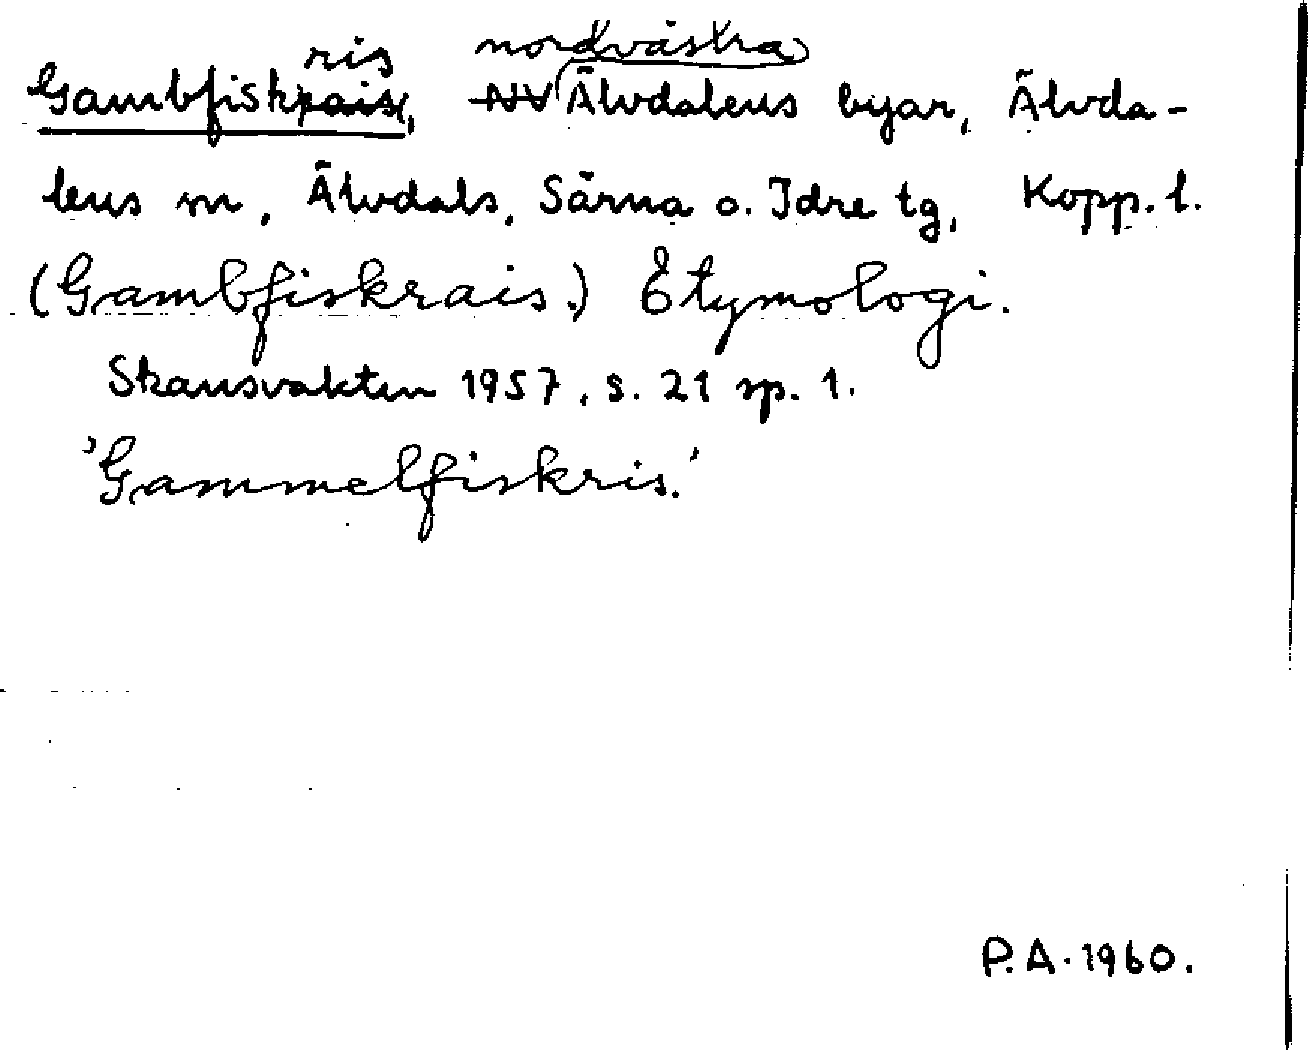 ris nordvästra
Gambfiskrais, NV Älvdalens byar, Älvda-
lens sn, Älvdals, Särna o. Idre tg, Kopp. l.
(Gambfiskrais.) Etymologi.
Skansvakten 1957, s. 21 sp. 1.
'Gammelfiskris.'
P.A. 1960.